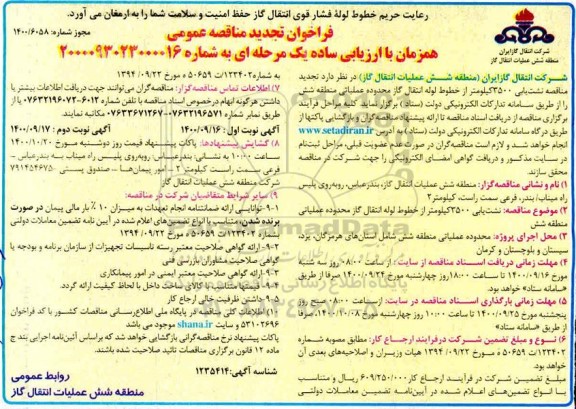 رعایت حریم خطوط لولهٔ فشار قوی انتقال گاز حفظ امنیت و سلامت شما را به ارمغان می آورد.
مجوز شماره: ۱۴۰۰/۶۰۵۸
فراخوان تجدید مناقصه عمومی
همزمان با ارزیابی ساده یک مرحله ای به شماره ۲۰۰۰۰۹۳۰۲۳۰۰۰۰۱۶
شرکت انتقال گاز ایران
منطقه شش عملیات انتقال گاز
شرکت انتقال گاز ایران (منطقه شش عملیات انتقال گاز) در نظر دارد تجدید
مناقصه نشت‌یابی ۳۵۰۰کیلومتر از خطوط لوله انتقال گاز محدوده عملیاتی منطقه شش
را از طریق سامانه تدارکات الکترونیکی دولت (ستاد) برگزار نماید کلیه مراحل فرآیند
برگزاری مناقصه از دریافت اسناد مناقصه تا ارائه پیشنهاد مناقصه گران و بازگشایی پاکتها از
طریق درگاه سامانه تدارکات الکترونیکی دولت (ستاد) به آدرس www.setadiran.ir
انجام خواهد شد و لازم است مناقصه‌گران در صورت عدم عضویت قبلی، مراحل ثبت‌نام
در سایت مذکور و دریافت گواهی امضای الکترونیکی را جهت شرکت در مناقصه
محقق سازند.
۱) نام و نشانی مناقصه‌گزار: منطقه شش عملیات انتقال گاز، بندرعباس، روبه‌روی پلیس
راه میناب/ بندر، فرعی سمت راست، کیلومتر۲
۲) موضوع مناقصه: نشت‌یابی ۳۵۰۰کیلومتر از خطوط لوله انتقال گاز محدوده
منطقه شش
۳) محل اجرای پروژه: محدوده عملیاتی منطقه شش شامل استان‌های هرمزگان، یزد،
سیستان و بلوچستان و کرمان
۴) مهلت زمانی دریافت اسناد مناقصه از سایت: از ساعت ۰۸:۰۰ روز سه شنبه
مورخ ۱۴۰۰/۰۹/۱۶ تا ساعت ۱۸:۰۰ روز چهارشنبه مورخ ۱۴۰۰/۰۹/۲۴ صرفا از طریق
«سامانه ستاد» خواهد بود.
۵) مهلت زمانی بارگذاری اسناد مناقصه در سایت: از ساعت ۰۸:۰۰ روز
پنجشنبه مورخ ۱۴۰۰/۰۹/۲۵ تا ساعت ۱۰:۰۰ روز چهارشنبه مورخ ۱۴۰۰/۱۰/۰۸، صرفا
از طریق «سامانه ستاد»
۶) نوع و مبلغ تضمین شرکت در فرایند ارجاع کار: مطابق مصوبه شماره
۱۲۳۴۰۲/ت ۵۰۶۵۹ ه مورخ ۱۳۹۴/۰۹/۲۲ هیات وزیران و اصلاحیه‌های بعدی آن
خواهد بود.
مبلغ تضمین شرکت در فرآیند ارجاع کار ۶۰۹/۲۵۰/۰۰۰ ریال و متناسب
با انواع تضمین‌های اعلام شده در آیین‌نامه تضمین معاملات دولتی
به شماره ۱۲۳۴۰۲/ت ۵۰۶۵۹ ه مورخ ۱۳۹۴/۰۹/۲۲
۷) اطلاعات تماس مناقصه‌گزار: مناقصه‌گران می‌توانند جهت دریافت اطلاعات بیشتر یا
داشتن هرگونه ابهام درخصوص اسناد مناقصه با تلفن شماره ۶۰۱۲-۰۷۶۳۲۱۹۶۰۷۲ و یا از
طریق نمابر شماره ۰۷۶۳۲۱۹۶۵۷۱-۰۷۶۳۳۶۷۱۲۶۷ مکاتبه نمایند.
آگهی نوبت اول: ۱۴۰۰/۰۹/۱۶ آگهی نوبت دوم: ۱۴۰۰/۰۹/۱۷
۸) گشایش پیشنهادها: پاکات پیشنهاد قیمت روز دوشنبه مورخ ۱۴۰۰/۱۰/۲۰
ساعت ۱۰:۰۰ به نشانی: بندرعباس، روبه‌روی پلیس راه میناب به بندرعباس -
فرعی سمت راست کیلومتر ۲ - امور پیمان‌ها - صندوق پستی ۷۹۱۴۵۴۶۷۵-
شرکت منطقه شش عملیات انتقال گاز
۹) سایر شرایط متقاضیان شرکت در مناقصه:
۹-۱ توانایی ارائه ضمانتنامه انجام تعهدات به میزان ۱۰٪ بار مالی پیمان در صورت
برنده شدن، متناسب با انواع تضمین‌های اعلام شده در آیین نامه تضمین معاملات دولتی
شماره ۱۲۳۴۰۲/ت ۵۰۶۵۹ ه مورخ ۱۳۹۴/۰۹/۲۲
۹-۲ ارائه گواهی صلاحیت معتبر رسته تاسیسات تجهیزات از سازمان برنامه و بودجه یا
گواهی صلاحیت مشاوران بازرسی فنی
۹-۳ ارائه گواهی صلاحیت معتبر ایمنی در امور پیمانکاری
داشتن ظرفیت خالی ارجاع کار
۱۰) اطلاعات کلی مناقصه در پایگاه ملی اطلاع‌رسانی مناقصات کشور با کد فراخوان
۵۳۱۰۲۶۹۶ و سایت shana.ir موجود می باشد
پاکات پیشنهاد نرخ مناقصه‌گرانی بازگشایی خواهد شد که براساس آئین‌نامه اجرایی بند ج
ماده ۱۲ قانون برگزاری مناقصات تائید صلاحیت شده باشند.
شناسه آگهی: ۱۲۳۵۴۱۴
روابط عمومی
منطقه شش عملیات انتقال گاز